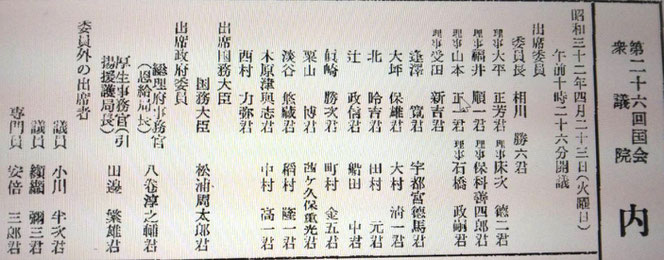 第二十六回国会
衆議院
内
昭和三十二年四月二十三日(火曜日)
午前十時二十六分開議
出席委員
委員長 相川 勝六君
理事大平 正芳君 理事床次 徳二君
理事福井 順一君 理事保科善四郎君
理事山本 正一君 理事石橋 政嗣君
理事受田 新吉君
逢澤 寛君 宇都宮徳馬君
大坪 保雄君 大村 清一君
北 昤吉君 田村 元君
辻 政信君 船田 中君
眞崎 勝次君 町村 金五君
粟山 博君 茜ケ久保重光君
淡谷 悠藏君 稻村 隆一君
木原津與志君 中村 高一君
西村 力弥君
出席国務大臣
国務大臣 松浦周太郎君
出席政府委員
総理府事務官
(恩給局長) 八巻淳之輔君
厚生事務官(引
揚援護局長) 田邊 繁雄君
委員外の出席者
議員 小川 半次君
議員 纐纈 彌三君
専門員 安倍 三郎君